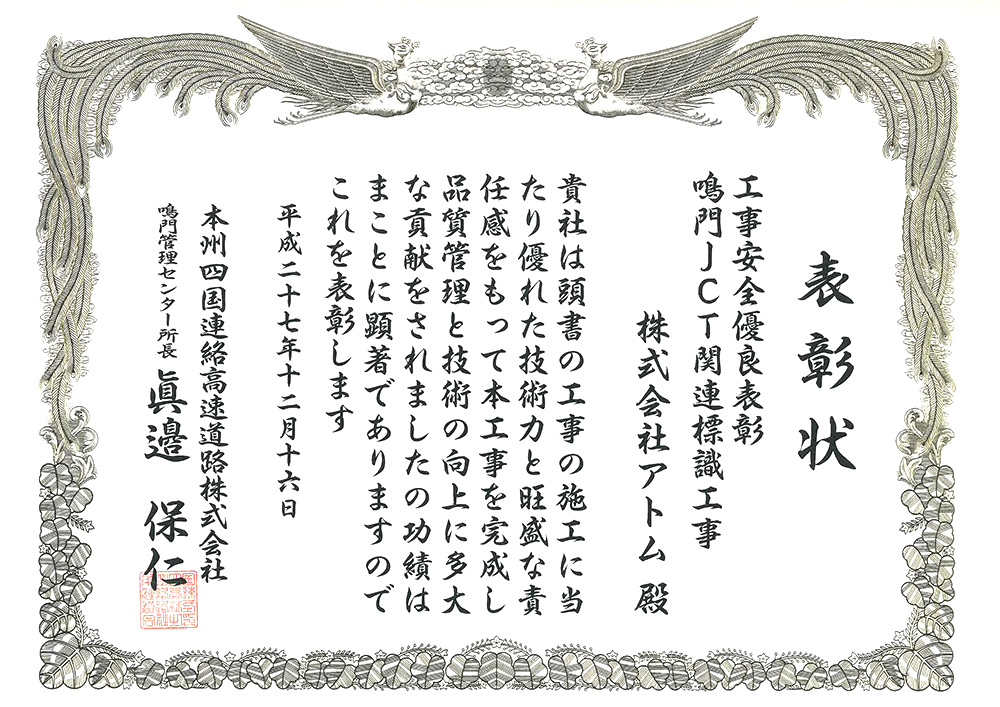 表彰状
工事安全優良表彰
鳴門JCT関連標識工事
株式会社アトム 殿
貴社は頭書の工事の施工に当
たり優れた技術力と旺盛な責
任感をもって本工事を完成し
品質管理と技術の向上に多大
な貢献をされましたの功績は
まことに顕著でありますので
これを表彰します
平成二十七年十二月十六日
本州四国連絡高速道路株式会社
鳴門管理センター所長 眞邉 保仁